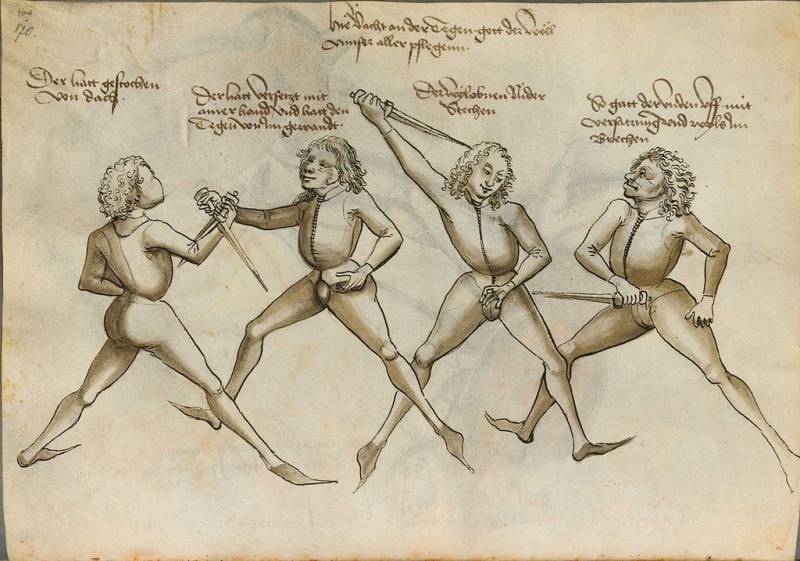 170.
Hie Vacht an der Tegen gott der wöll
vnnser aller pflegenn
Der hatt gestochen
von dach
Der hatt versetzt mit
ainer hand vnd hatt den
Tegen von im gewandt
Der wyl obnen Nider
Stechen
So gatt der vnden vff mit
versatzung vnd wyls Im
Brechen